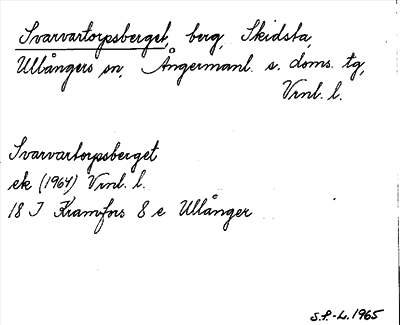 Svarvartorpsberget, berg, Skidsta,
Ullångers sn, Ångermanl. s. doms. tg,
Vrnl. l.
Svarvartorpsberget
ek (1964) Vrnl. l.
18 J Kramfors 8 e Ullånger
S.F.-L. 1965